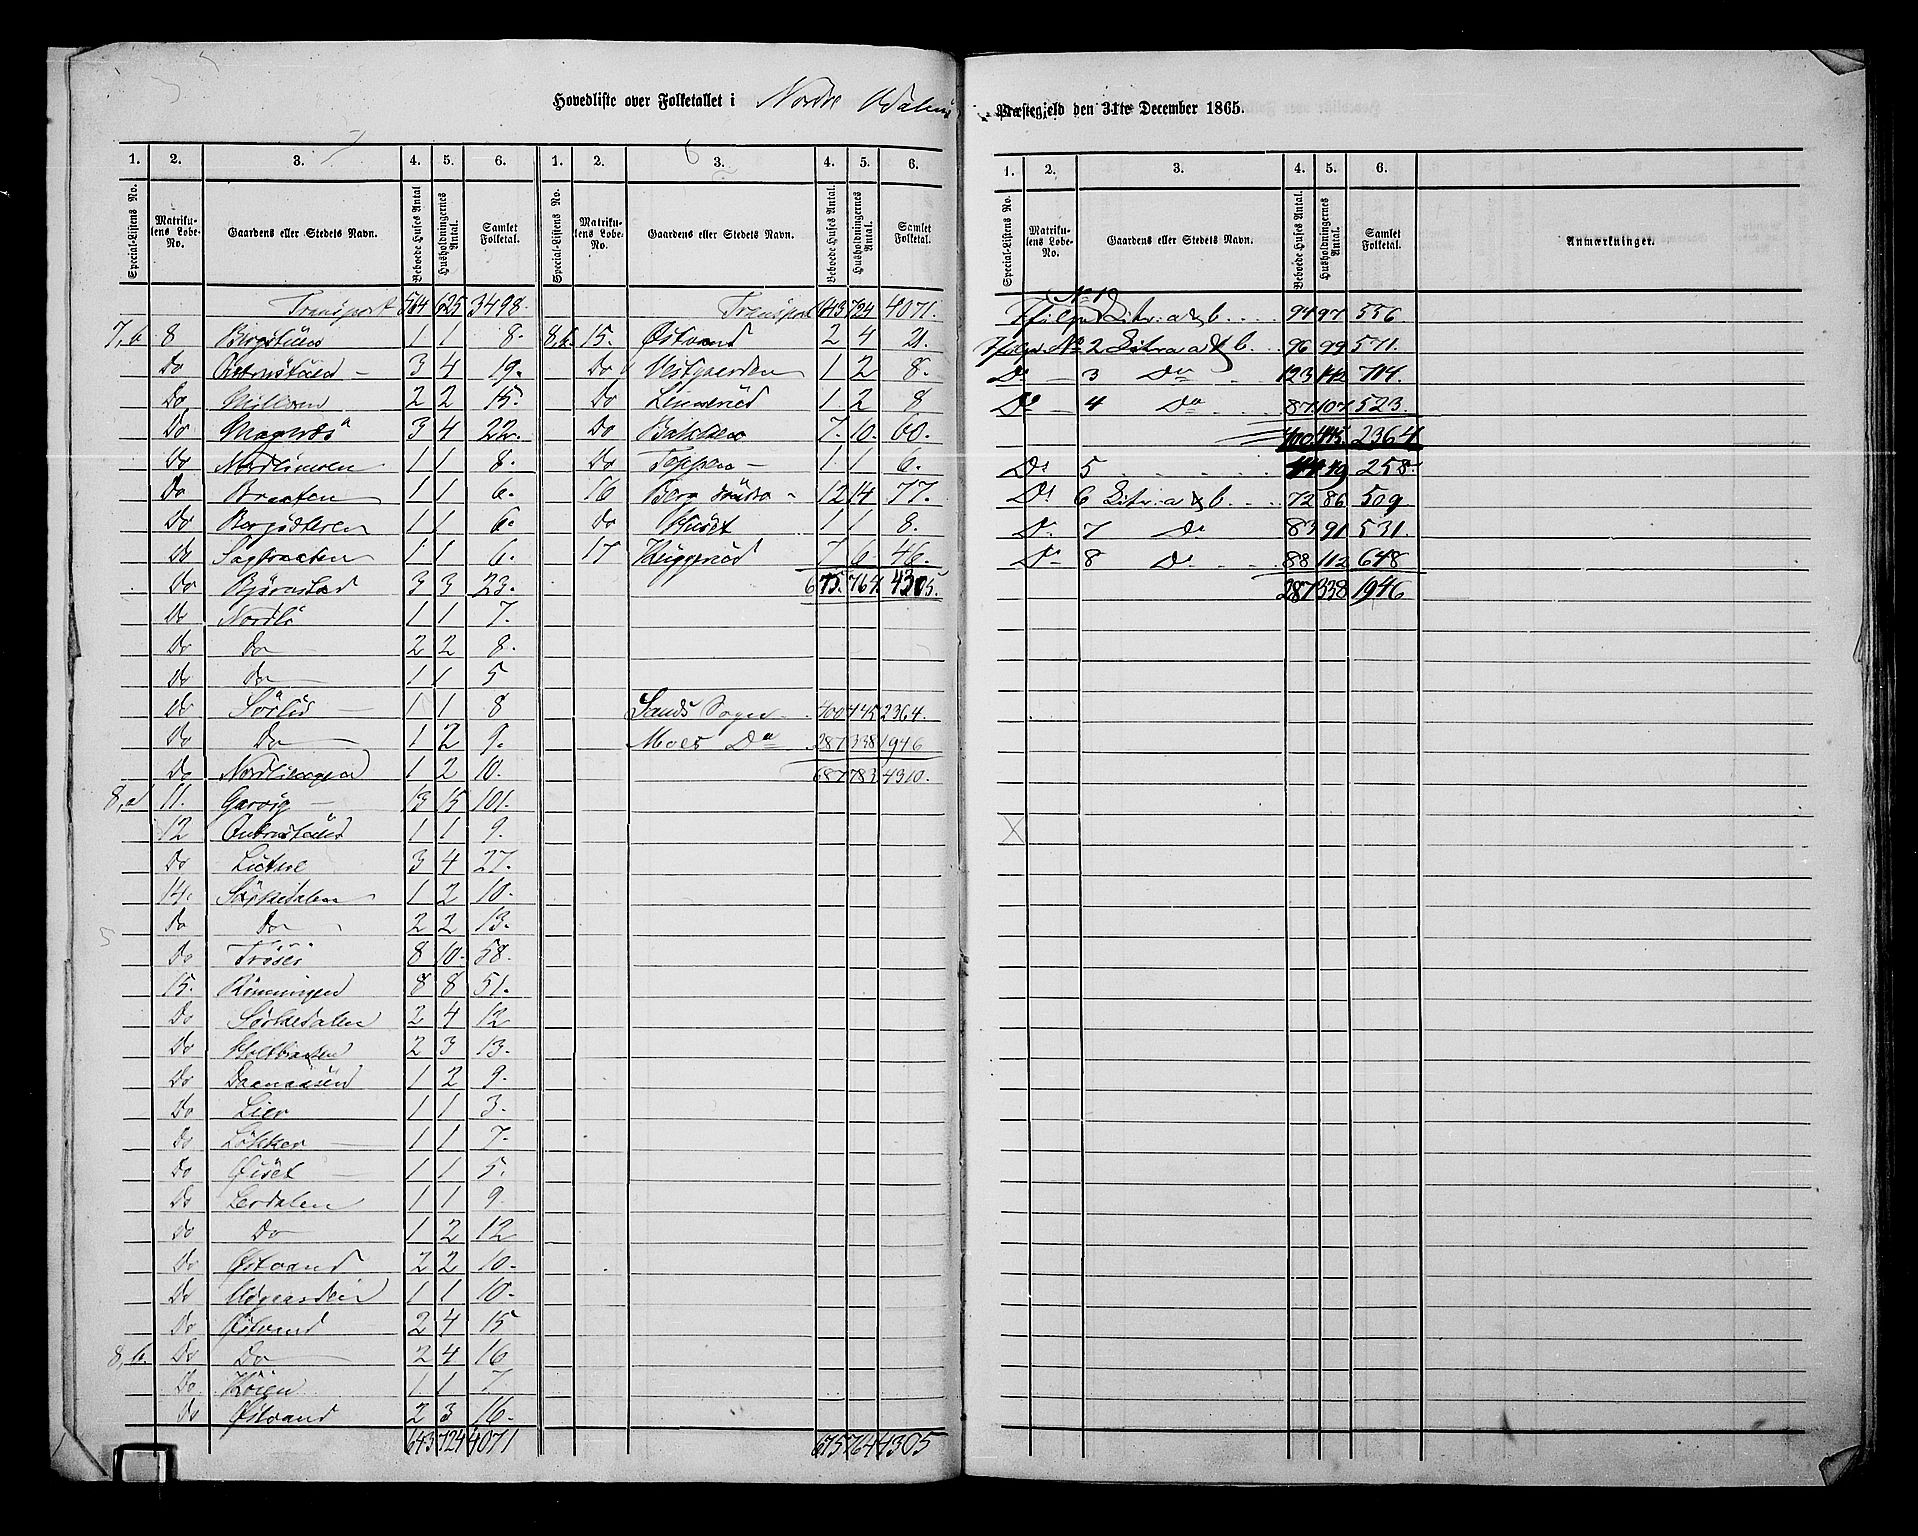 Hovedliste over Folketallet i Nordre Odalens
Præstegjeld den 31te December 1865.
1. 2. 3. 4. 5. 6. 1. 2. 3. 4. 5. 6.
Special-Listens No. Matrikulens Løbe-No. Gaardens eller Stedets Navn. Beboede Huses Antal Husholdningernes Antal. Samlet Folketal. Special-Listens No. Matrikulens Løbe-No. Gaardens eller Stedets Navn. Beboede Huses Antal. Husholdningernes Antal. Samlet Folketal.
Transport 564 625 3498.
7,b 8 1 1 8.
Do 3 4 19.
Do 2 2 15.
Do Magnæs 3 4 22.
Do Nordlimoen 1 1 8.
Do Braaten 1 1 6.
Do Bergsæteren 1 1 6.
Do Sagbraaten 1 1 6.
Do Bjørnstad 3 3 23.
Do Nordli 1 1 7.
Do Do 2 2 8.
Do Do 1 1 5
Do Sørlie 1 1 8
Do Do 1 2 9.
Do Nordlihagen 1 2 10.
8,a 11. Garvig 13 15 101.
12 1 1 9.
Do 3 4 27.
14. Sørkedalen 1 2 10.
Do Do 2 2 13.
Do Trøseo 8 10 58.
15. Rønningen 8 8 51.
Do Sørkedalen 2 4 12
Do Holtbraaten 2 3 13.
Do 1 2 9.
Do Lier 1 1 3.
Do Løkker 1 1 7.
Do Øiset 1 1 5.
Do Lerdalen 1 1 9
Do Do 1 2 12
Do Østvand 2 2 10.
Do 1 1 10.
Do Østvand 2 4 15
8,b. Do Do 2 4 16
Do Høien 1 1 7
Do Østvand 2 3 16.
643 724 4071
Transport 643 724 4071.
8,b. 15. Østvand 2 4 21.
Do Vestgaarden 1 2 8.
Do Linnerud 1 2 8
Do Bakken 7. 10. 60.
Do Toppen 1 1 6.
16 Berg søndre 12 14 77.
Do Huset 1 1 8.
17 Huggerud 7 6 46.
675. 764. 4305.
Sands Sogn 400 445 2364.
Moes Do 287 338 1946
687 783 4310.
675 764 4305
1. 2. 3. 4. 5. 6.
Special-Listens No. Matrikulens Løbe-No. Gaardens eller Stedets Navn. Beboede Huses Antal. Husholdningernes Antal. Samlet Folketal. Anmærkninger.
No 1
Ifølge Litr. a & b. 94 97 556
Ifølge No 2 Litra a & b. 96 99 571.
Do 3 Do 123 142 714.
Do 4 Do 87 107 523.
400 445 2364
Do 5 44 49 258.
Do 6 Litr. a & b. 72 86 509
Do 7 Do 83 91 531.
Do 8 Do 88 112 648
287 338 1946